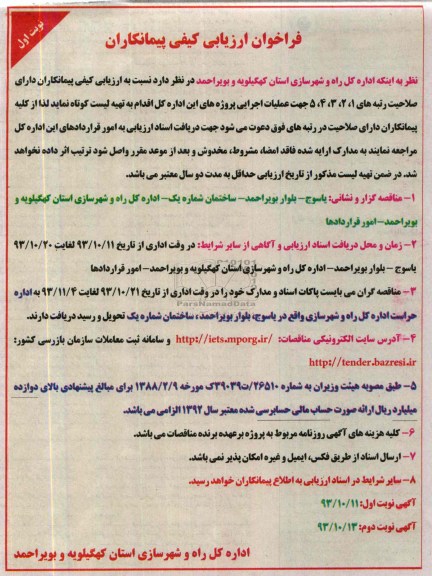 نوبت اول
فراخوان ارزیابی کیفی پیمانکاران
نظر به اینکه اداره کل راه و شهرسازی استان کهگیلویه و بویراحمد در نظر دارد نسبت به ارزیابی کیفی پیمانکاران دارای
صلاحیت رتبه های ۱، ۲، ۳، ۴، ۵ جهت عملیات اجرایی پروژه های این اداره کل اقدام به تهیه لیست کوتاه نماید لذا از کلیه
پیمانکاران دارای صلاحیت در رتبه های فوق دعوت می شود جهت دریافت اسناد ارزیابی به امور قراردادهای این اداره کل
مراجعه نمایند به مدارک ارایه شده فاقد امضاء، مشروط، مخدوش و بعد از موعد مقرر واصل شود ترتیب اثر داده نخواهد
شد. در ضمن تهیه لیست مذکور از تاریخ ارزیابی حداقل به مدت دو سال معتبر می باشد.
۱- مناقصه گزار و نشانی: یاسوج- بلوار بویراحمد- ساختمان شماره یک- اداره کل راه و شهرسازی استان کهگیلویه و
بویراحمد- امور قراردادها
۲- زمان و محل دریافت اسناد ارزیابی و آگاهی از سایر شرایط: در وقت اداری از تاریخ ۹۳/۱۰/۱۱ لغایت ۹۳/۱۰/۲۰
یاسوج - بلوار بویراحمد- اداره کل راه و شهرسازی استان کهگیلویه و بویراحمد- امور قراردادها
ParsNamadData
۳- مناقصه گران می بایست پاکات اسناد و مدارک خود را در وقت اداری از تاریخ ۹۳/۱۰/۲۱ لغایت ۹۳/۱۱/۴ به اداره
حراست اداره کل راه و شهرسازی واقع در یاسوج، بلوار بویراحمد، ساختمان شماره یک تحویل و رسید دریافت دارند.
۴- آدرس سایت الکترونیکی مناقصات: http://iets.mporg.ir/ و سامانه ثبت معاملات سازمان بازرسی کشور:
http://tender.bazresi.ir
۵- طبق مصوبه هیئت وزیران به شماره ۲۶۵۱۰/ت۳۹۰۳۹ک مورخه ۱۳۸۸/۲/۹ برای مبالغ پیشنهادی بالای دوازده
میلیارد ریال ارائه صورت حساب مالی حسابرسی شده معتبر سال ۱۳۹۲ الزامی می باشد.
۶- کلیه هزینه های آگهی روزنامه مربوط به پروژه برعهده برنده مناقصات می باشد.
۷- ارسال اسناد از طریق فکس، ایمیل و غیره امکان پذیر نمی باشد.
۸- سایر شرایط در اسناد ارزیابی به اطلاع پیمانکاران خواهد رسید.
آگهی نوبت اول: ۹۳/۱۰/۱۱
آگهی نوبت دوم: ۹۳/۱۰/۱۳
اداره کل راه و شهرسازی استان کهگیلویه و بویراحمد